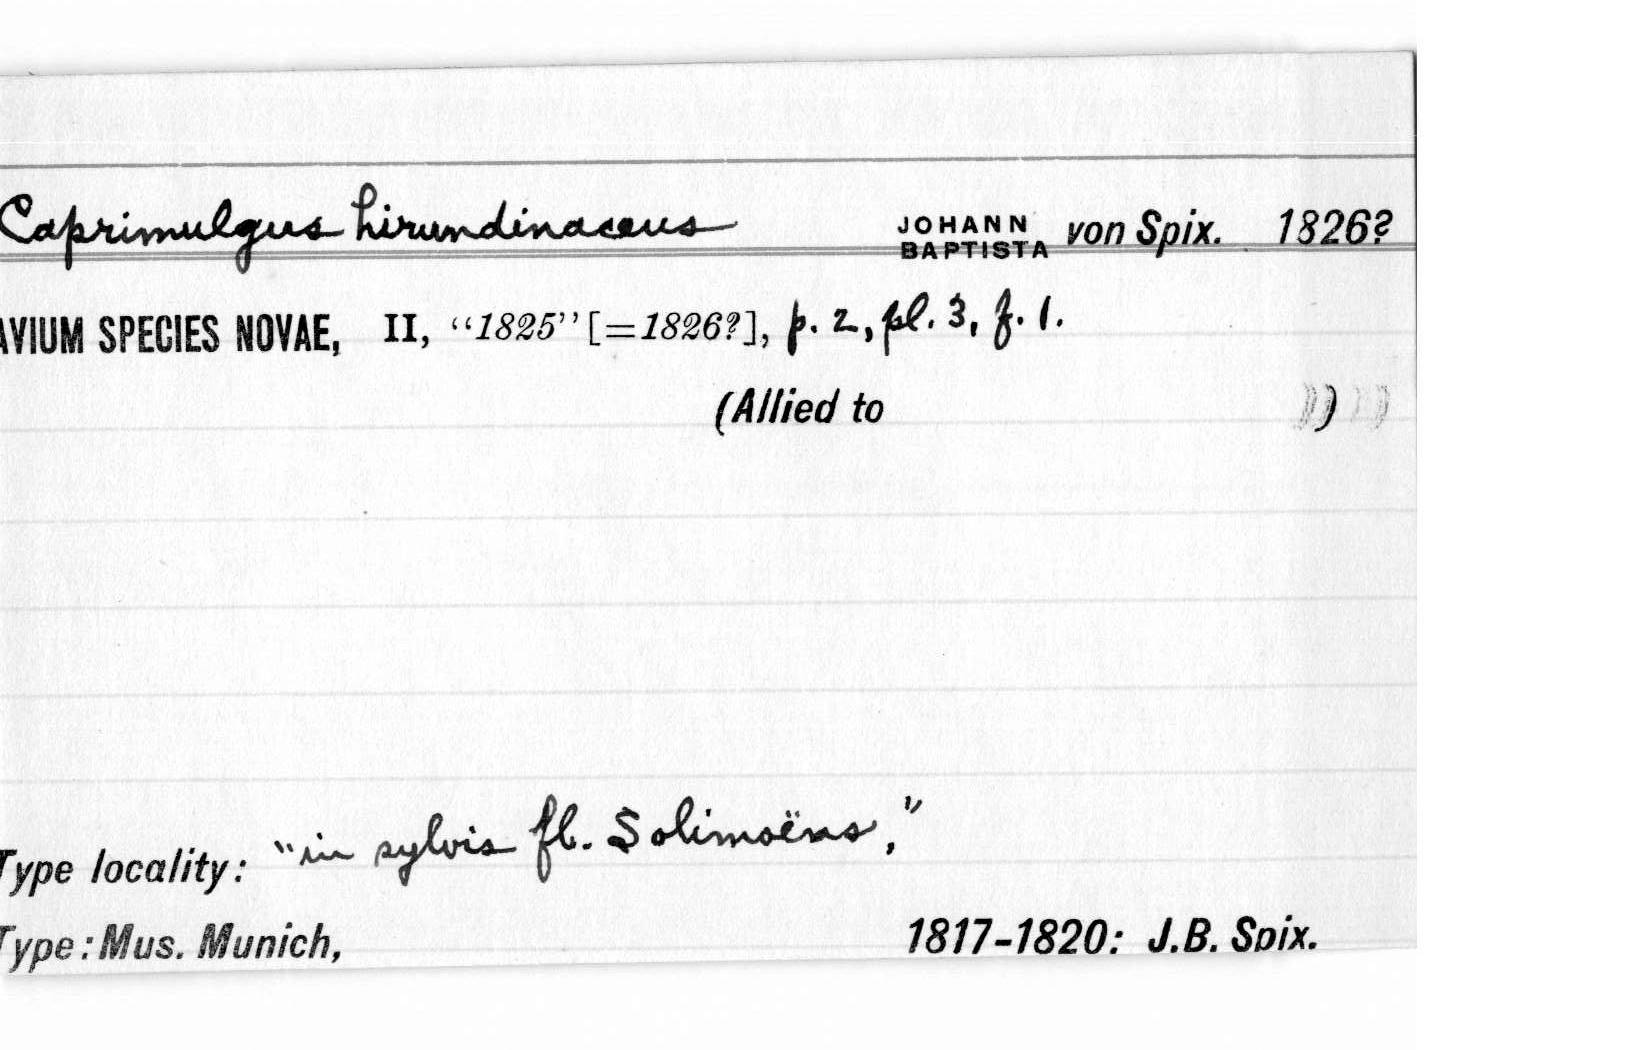 Caprimulgus hirundinaceus JOHANN BAPTISTA von Spix. 1826?
AVIUM SPECIES NOVAE, II, “1825” [=1826?], p. 2, pl. 3, f. 1.
(Allied to )
Type locality: "in sylvis fl. Solimoëns,"
Type: Mus. Munich, 1817-1820: J.B. Spix.